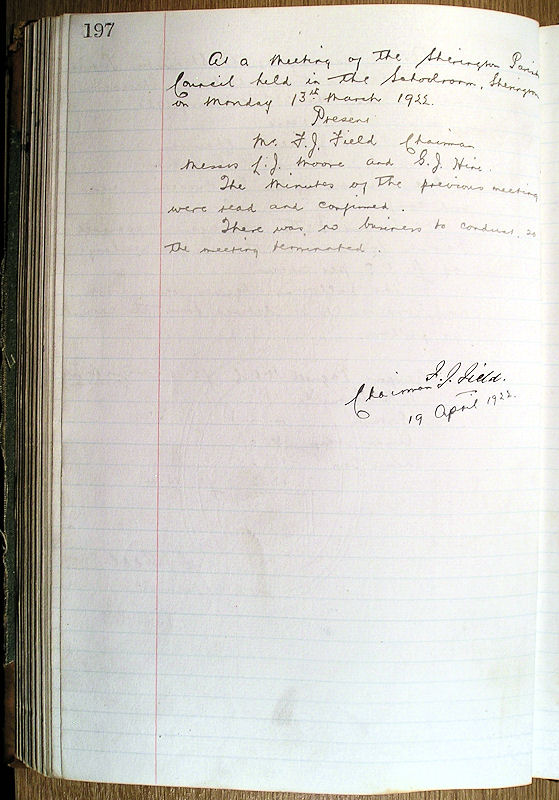 197
At a Meeting of the Sherington Parish
Council held in the Schoolroom, Sherington
on Monday 13th March 1922.
Present
Mr. F. J. Field Chairman
Messrs L. J. Moore and G. J. Hine.
The Minutes of the previous meeting
were read and confirmed.
There was no business to conduct, so
the meeting terminated.
F. J. Field.
Chairman
19 April 1922.